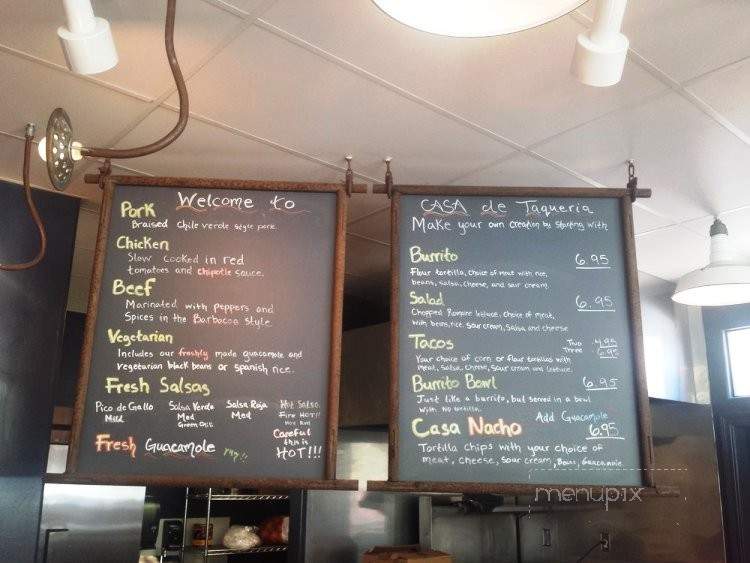 Welcome to
Pork
Braised chile verde style pork
Chicken
Slow cooked in red
tomatoes and chipotle sauce.
Beef
Marinated with peppers and
Spices in the Barbacoa style
Vegetarian
Includes our freshly made guacamole and
vegetarian black beans or spanish rice.
Fresh Salsas
Pico de Gallo
Mild
Salsa Verde
Med
Salsa Roja
Med
Hot Salsa
Fire HOT!!
Careful
this is
HOT!!!
Fresh Guacamole
CASA de Taqueria
Make your own creation by starting with
Burrito 6.95
Flour tortilla, choice of meat with rice,
beans, salsa, cheese, and sour cream
Salad 6.95
Chopped Romaine lettuce, choice of meat,
with beans, rice, sour cream, Salsa and cheese
Tacos Two 4.95
Three 6.95
Your choice of corn or flour tortillas with
meat, Salsa, cheese, sour cream and lettuce.
Burrito Bowl 6.95
Just like a burrito, but served in a bowl
with no tortilla.
Add Guacamole
Casa Nacho 6.95
Tortilla chips with your choice of
meat, cheese, sour cream, Beans, Guacamole
menupix